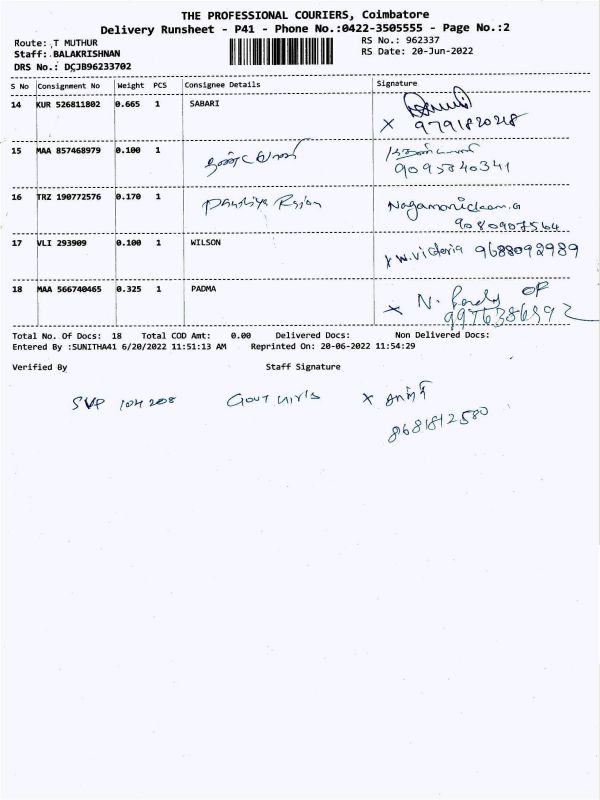 THE PROFESSIONAL COURIERS, Coimbatore
Delivery Runsheet - P41 - Phone No.:0422-3505555 - Page No.:2
Route: T MUTHUR RS No.: 962337
Staff: BALAKRISHNAN RS Date: 20-Jun-2022
DRS No.: DCJB96233702
S No Consignment No Weight PCS Consignee Details Signature
14 KUR 526811802 0.665 1 SABARI
X 9791820218
15 MAA 857468979 0.100 1
9095840341
16 TRZ 190772576 0.170 1 Nagamanickam.G
9080907564
17 VLI 293909 0.100 1 WILSON
x W.Victoria 9688092989
18 MAA 566740465 0.325 1 PADMA
X N.
9976386592
Total No. Of Docs: 18 Total COD Amt: 0.00 Delivered Docs: Non Delivered Docs:
Entered By :SUNITHA41 6/20/2022 11:51:13 AM Reprinted On: 20-06-2022 11:54:29
Verified By Staff Signature
SVP 104 208 Govt x
8681812580